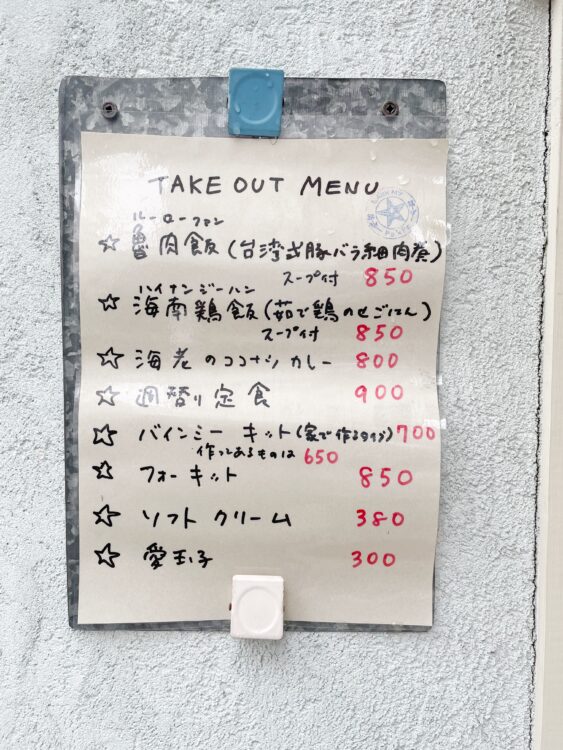 TAKE OUT MENU
ルーローファン
☆ 魯肉飯(台湾式豚バラ細肉煮)
スープ付 850
ハイナンジーハン
☆ 海南鶏飯(茹で鶏のせごはん)
スープ付 850
☆ 海老のココナツカレー 800
☆ 週替り定食 900
☆ バインミー キット(家で作るタイプ) 700
作ってあるものは 650
☆ フォーキット 850
☆ ソフトクリーム 380
☆ 愛玉子 300